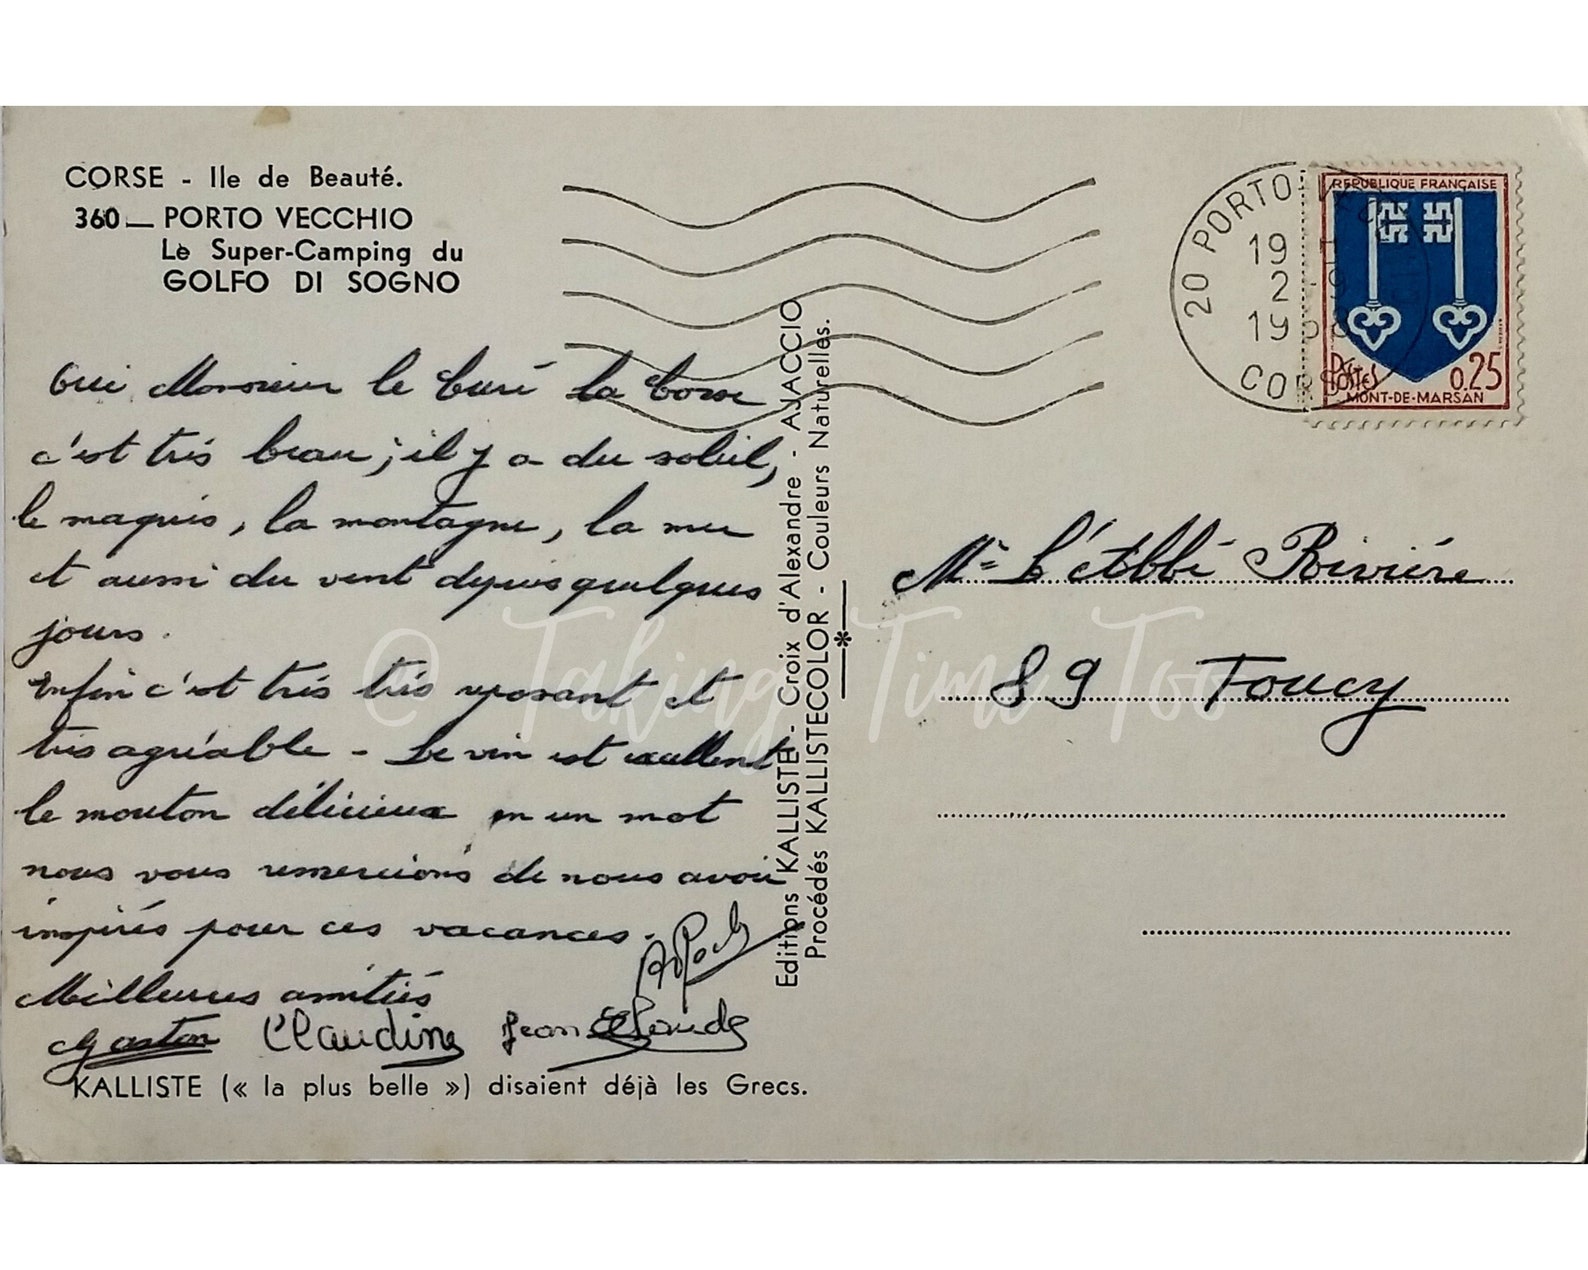 CORSE - Ile de Beauté.
360 — PORTO VECCHIO
Le Super-Camping du
GOLFO DI SOGNO
Oui Monsieur le Curé la Corse
c'est très beau; il y a du soleil,
le maquis, la montagne, la mer
et aussi du vent depuis quelques
jours.
Enfin c'est très très reposant et
très agréable - Le vin est excellent
le mouton délicieux en un mot
nous vous remercions de nous avoir
inspirés pour ces vacances.
Meilleures amitiés
Gaston Claudine Jean Claude
KALLISTE (« la plus belle ») disaient déjà les Grecs.
Editions KALLISTE - Croix d'Alexandre - AJACCIO
Procédés KALLISTECOLOR - Couleurs Naturelles.
20 PORTO
19 H
2
19
CORSE
REPUBLIQUE FRANÇAISE
POSTES
0.25
MONT-DE-MARSAN
Mr L'Abbé Rivière
89 Toucy
© Taking Time Too